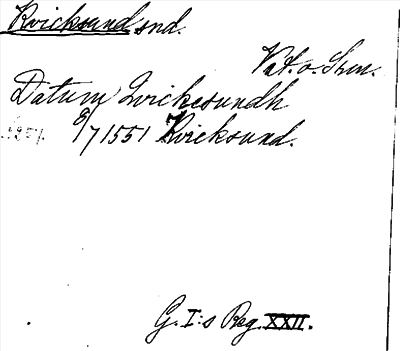 Kvicksund snd.
Vat. o. Srm.
Datum Qvickesundh
8/7 1551 Kvicksund.
G. I:s Reg. XXII.